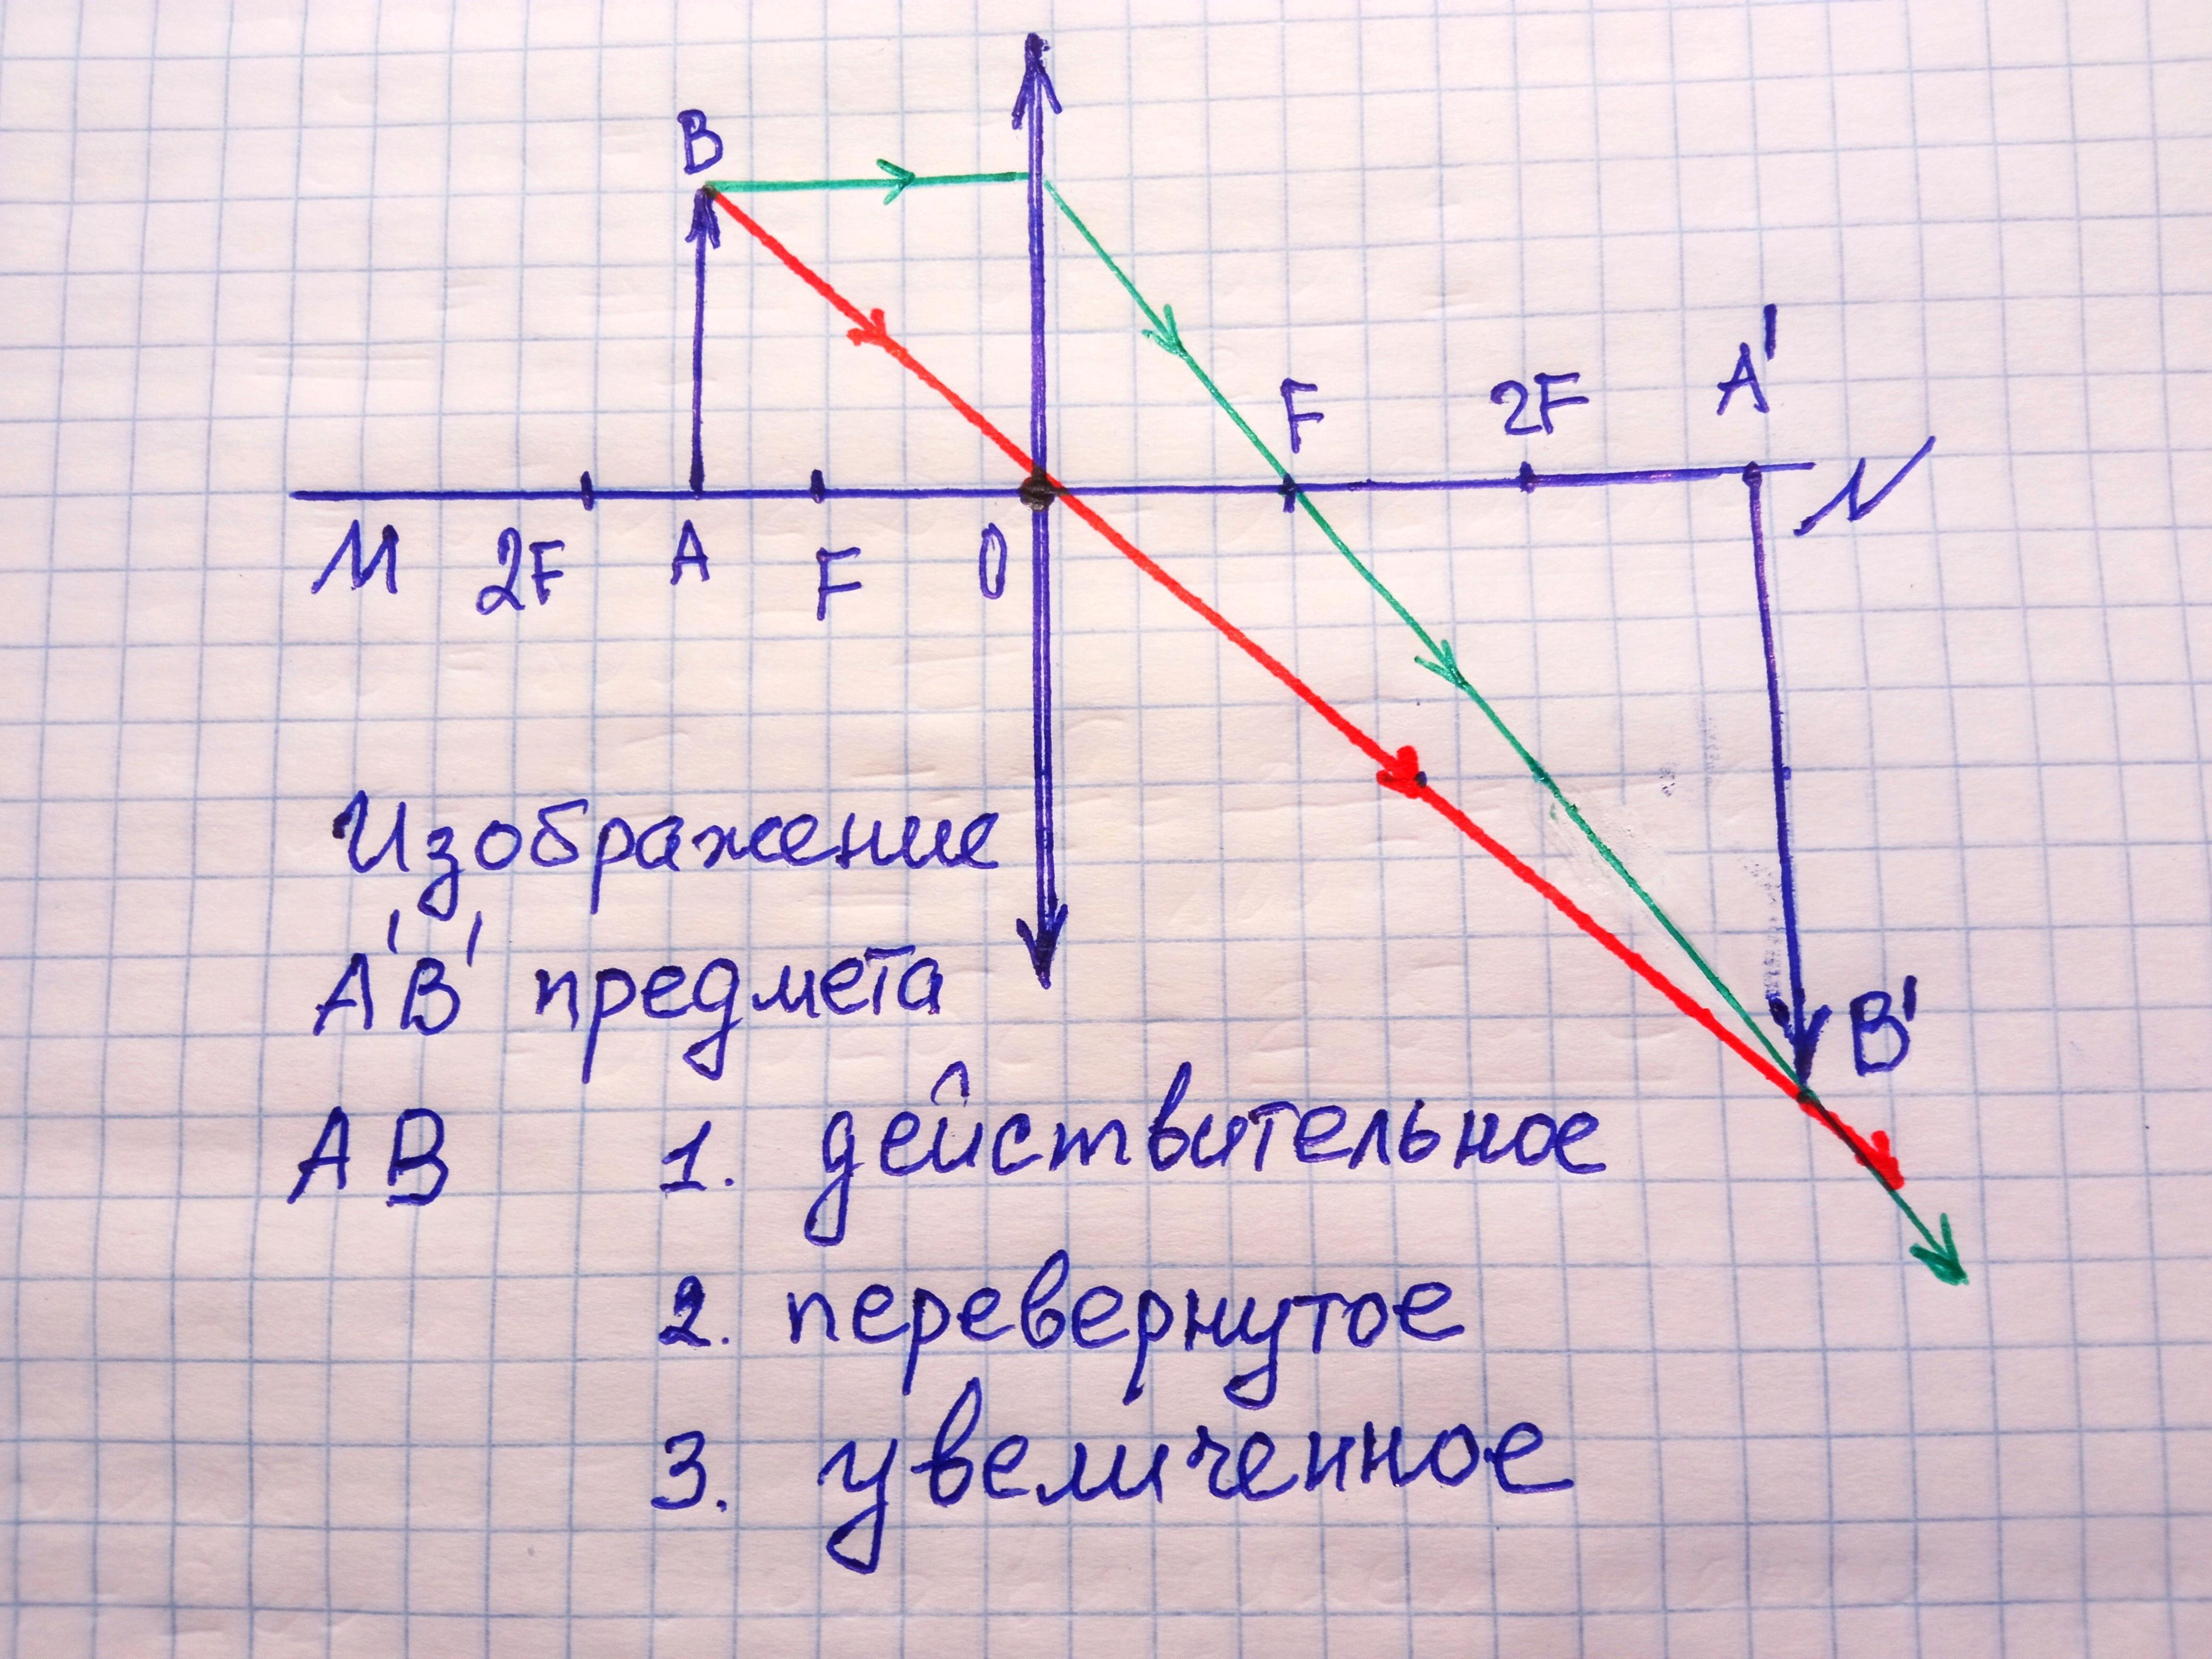 B
F 2F A'
M 2F A F O N
Изображение
A'B' предмета
B'
AB 1. действительное
2. перевернутое
3. увеличенное